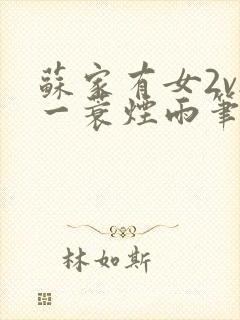 蘇家有女2v
一蓑煙雨筆
林如斯